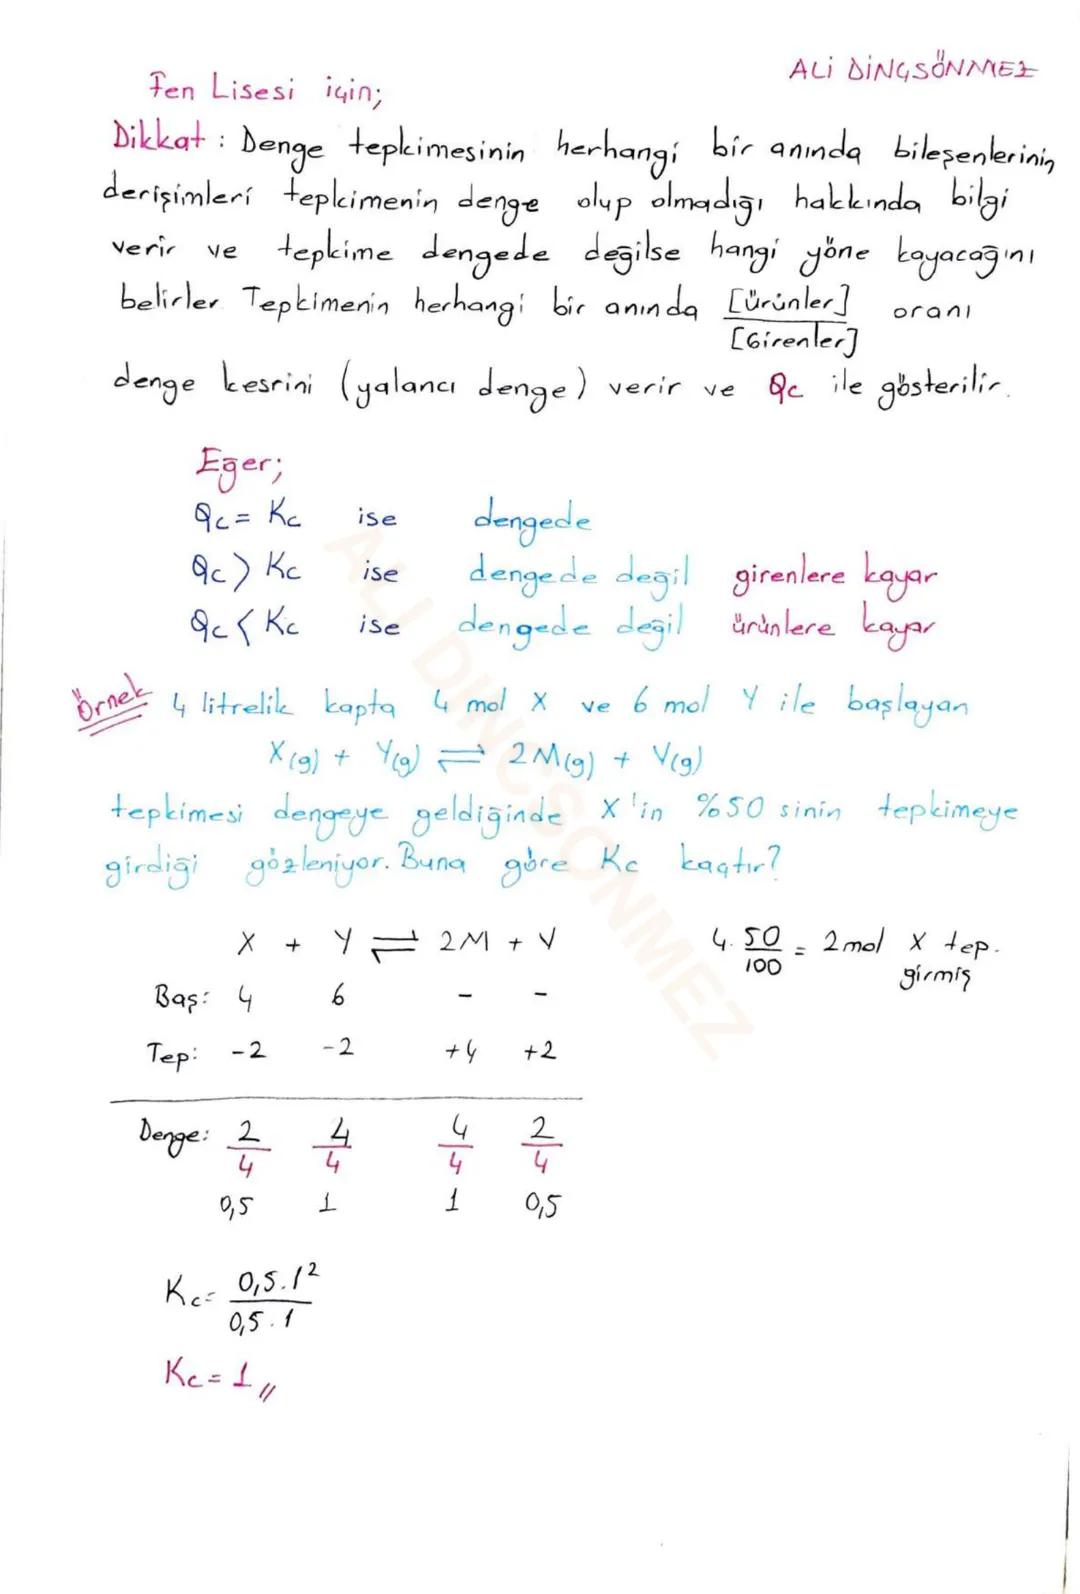 ALİ DİNÇSÖNMEZ
Fen Lisesi için;
Dikkat : Denge tepkimesinin herhangi bir anında bileşenlerinin
derişimleri tepkimenin denge olup olmadığı hakkında bilgi
verir ve tepkime dengede değilse hangi yöne kayacağını
belirler Tepkimenin herhangi bir anında [Ürünler] oranı
[Girenler]
denge kesrini (yalancı denge) verir ve Qc ile gösterilir.
Eğer;
Qc = Kc ise dengede
Qc > Kc ise dengede değil girenlere kayar
Qc < Kc ise dengede değil ürünlere kayar
Örnek 4 litrelik kapta 4 mol X ve 6 mol Y ile başlayan
X(g) + Y(g) ⇌ 2M(g) + V(g)
tepkimesi dengeye geldiğinde X'in %50 sinin tepkimeye
girdiği gözleniyor. Buna göre Kc kaçtır?
X + Y ⇌ 2M + V 4. 50/100 = 2mol X tep.
girmiş
Baş: 4 6 - -
Tep: -2 -2 +4 +2
Denge: 2/4 4/4 4/4 2/4
0,5 1 1 0,5
Kc = 0,5.1²
0,5.1
Kc = 1 //
ALİ DINCSONMEZ